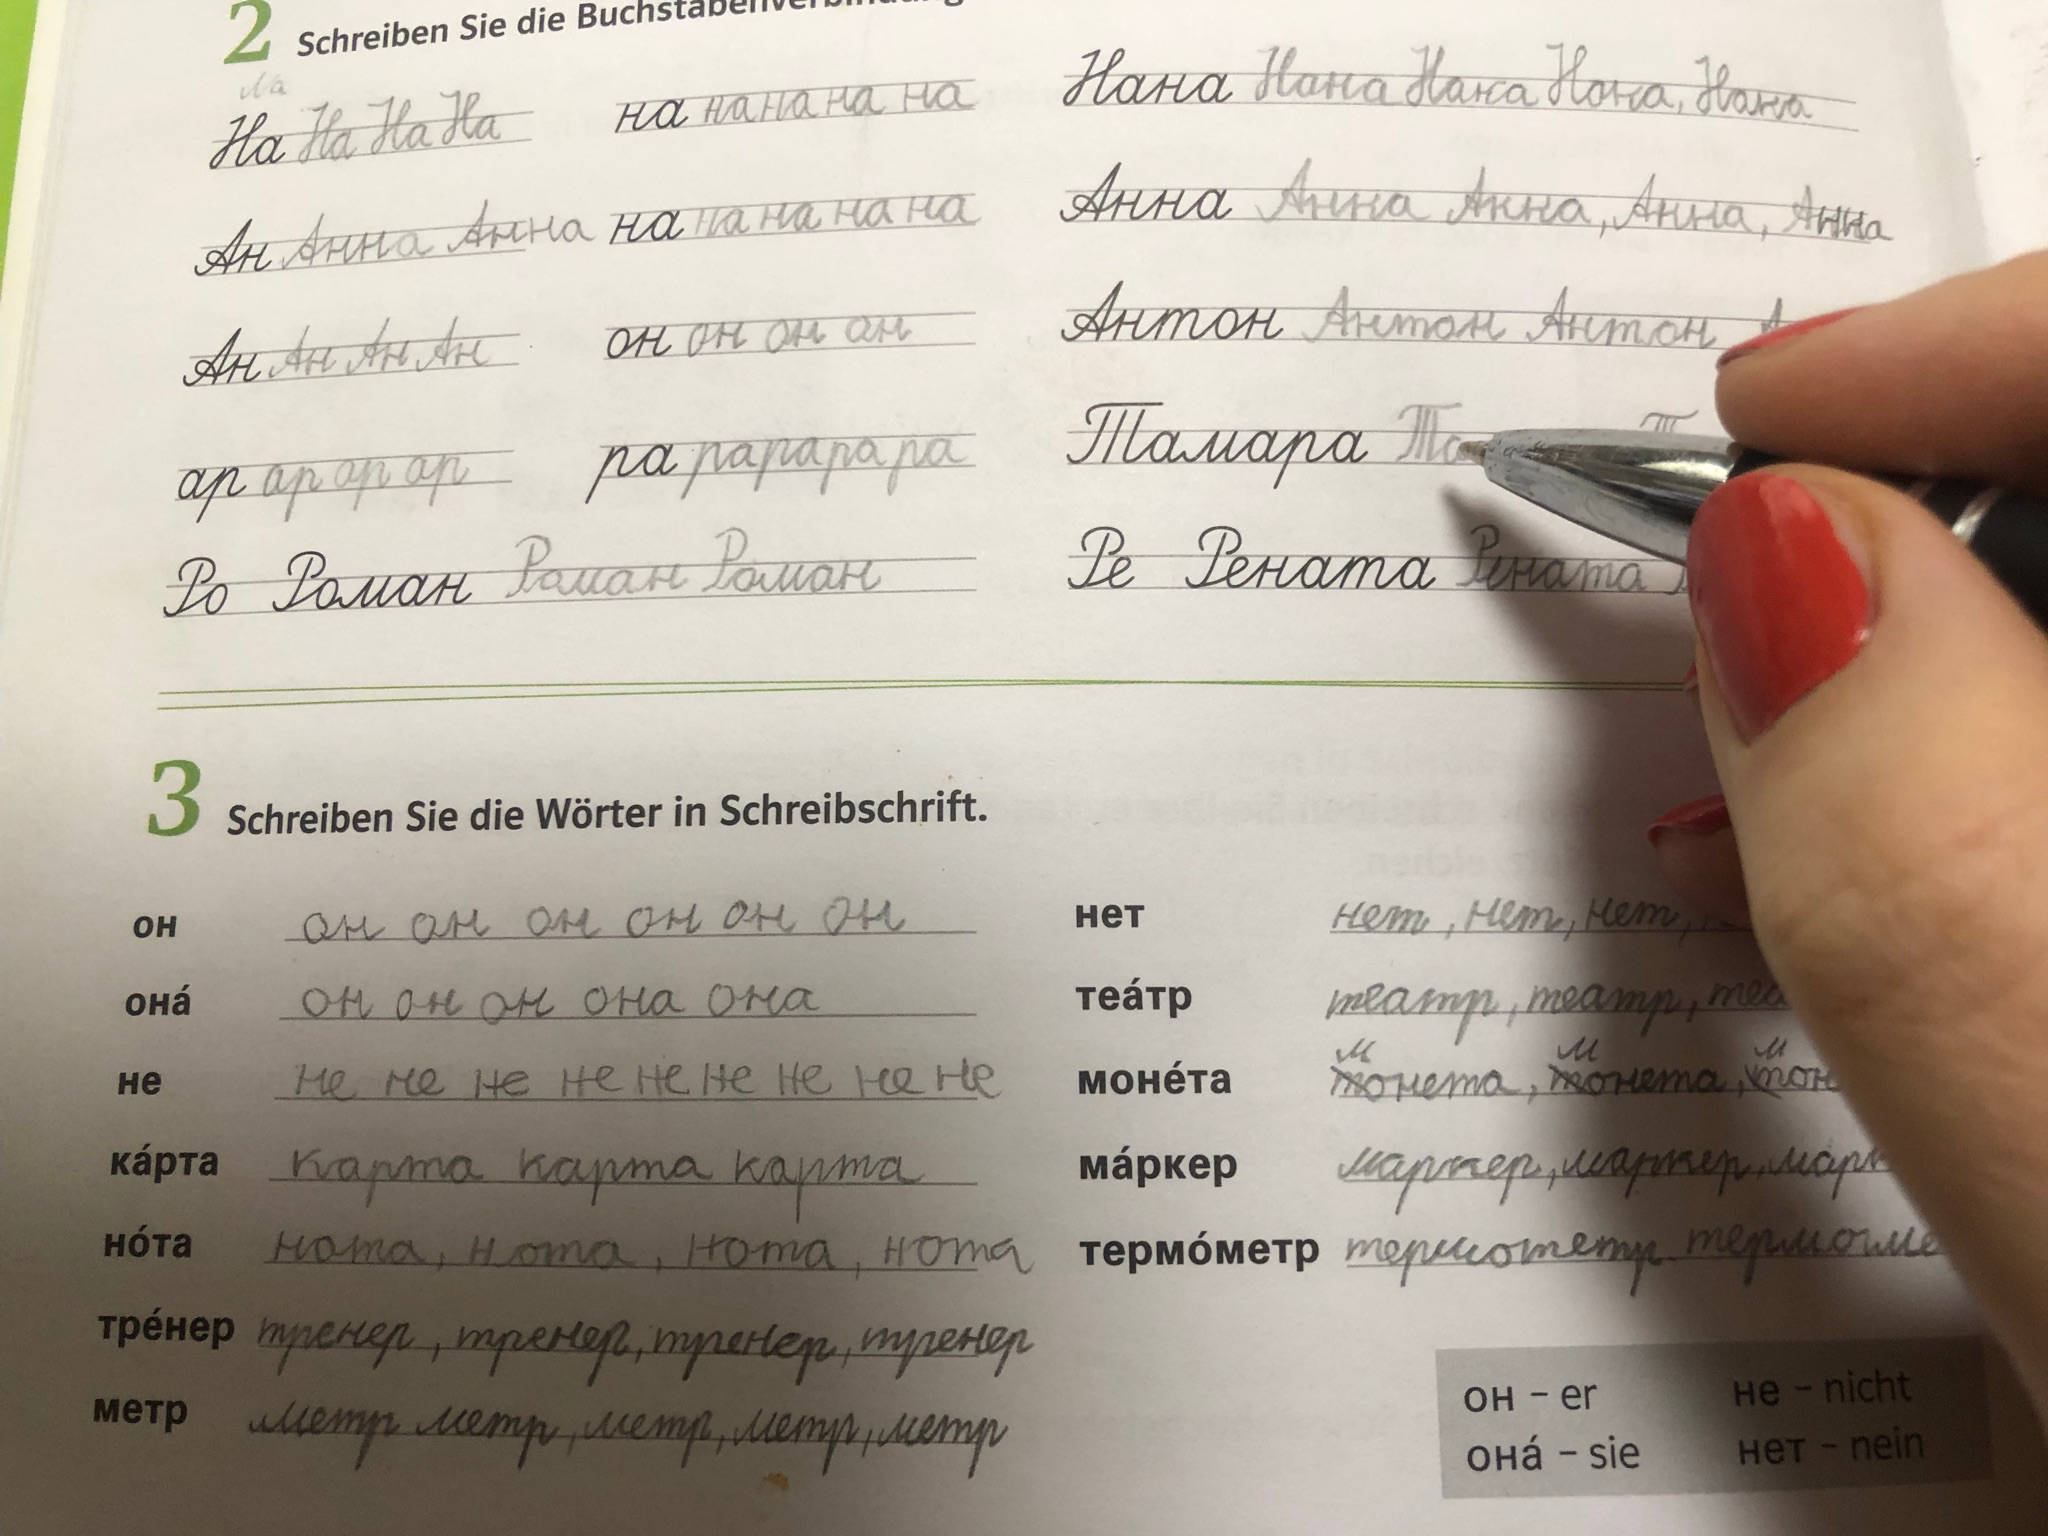 2 Schreiben Sie die
На На На На
на на на на на
Ан Анна Анна
на на на на на
Ан Ан Ан Ан
он он он он
ар ар ар ар
ра ра ра ра ра
Ро Роман Роман Роман
Нана Нана Нана Нана, Нана
Анна Анна Анна, Анна, Анна
Антон Антон Антон
Тамара Та
Ре Рената Рената
3 Schreiben Sie die Wörter in Schreibschrift.
он он он он он он он
она́ он он он она она
не не не не не не не не не не
ка́рта карта карта карта
но́та нота, нота, нота, нота
тре́нер тренер, тренер, тренер, тренер
метр метр метр, метр, метр, метр
нет нет, нет, нет,
теа́тр театр, театр,
моне́та м м м
тонета, тонета,
ма́ркер маркер, маркер,
термо́метр термотетр
он – er не – nicht
она́ – sie нет – nein